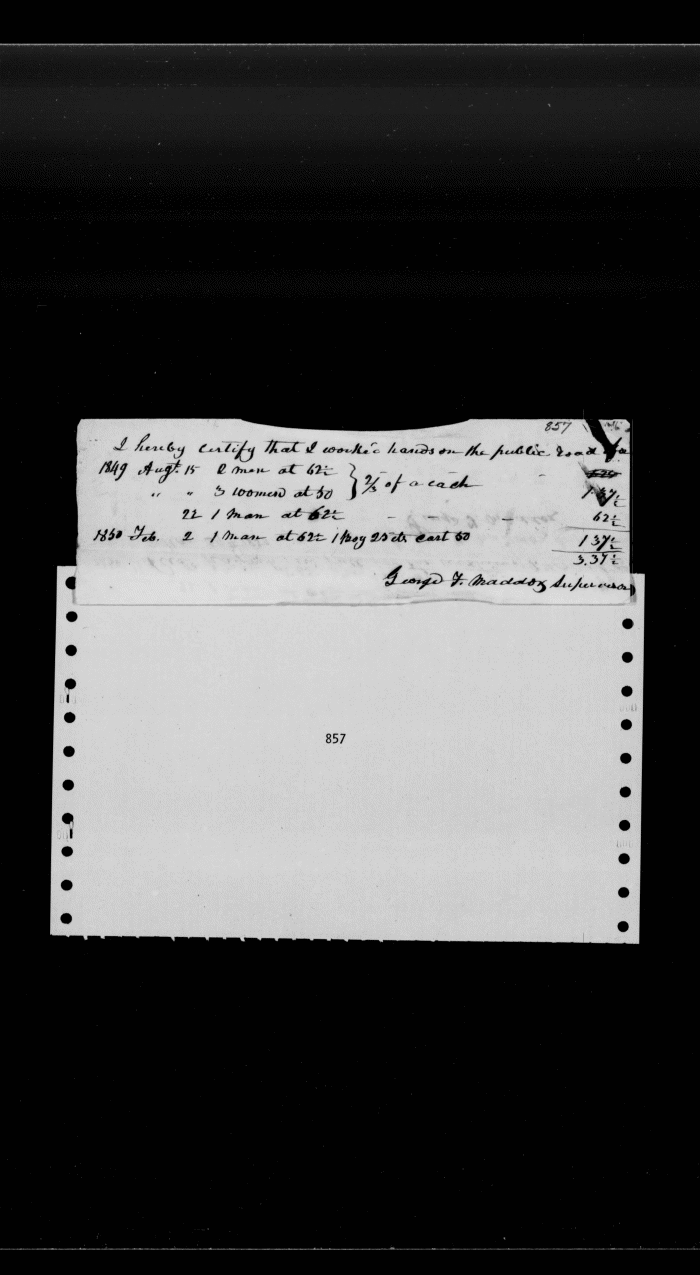 857
I hereby certify that I workd hands on the public road
1849 Augt. 15 2 men at 62½ } 2/5 of a each
" " 3 women at 50 1 37½
22 1 man at 62½ - - 62½
1850 Feb. 2 1 man at 62½ 1 boy 25 cts cart 50 1 37½
3.37½
George F. Maddox Supervisor
857